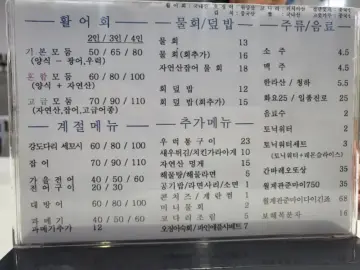 활 어 회
2인/3인/4인
기 본 모 듬 50/65/80
(양식 - 광어,우럭)
혼 합 모 듬 60/80/100
(양식 + 자연산)
고 급 모 듬 70/90/110
(자연산,잡어,고급어종)
계 절 메 뉴
강도다리 세꼬시 60/80/100
잡 어 60/80/100
가 을 전 어 40/50/60
전 어 구 이 20/30
대 방 어 60/80/100
과 메 기 40/50/60
과메기추가 12
물 회 / 덮 밥
물 회 13
물 회 (회추가) 16
자연산잡어 물 회 18
회 덮 밥 12
회 덮 밥 (회추가) 15
추 가 메 뉴
우 럭 통 구 이 23
새우튀김/치킨가라아게 10
자연산 멍게 15
해물탕/해물라면
공기밥/라면사리/소면 1
콘 치 즈 / 계 란 찜
미 니 물 회
코 다 리 조 림 5
오징어숙회/파인애플샤베트 7
주 류 / 음 료
소 주 4.5
맥 주 4.5
한라산 / 청하 5.5
화요25 / 일품진로 25
음료수 2
토닉워터 2
토닉워터세트 3
(토닉워터+레몬슬라이스)
간바레오또상 35
월계관준마이750 35
월계관준마이다이긴죠 68
보해복분자 16